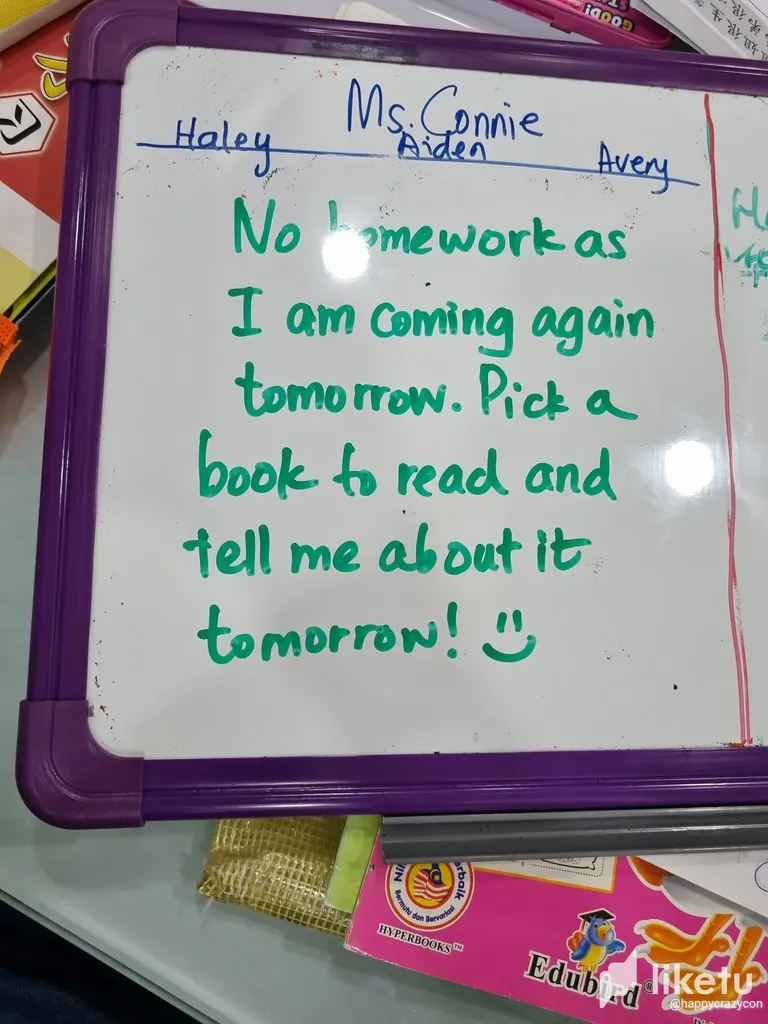 GOOD!
Ms. Connie
Haley Aiden Avery
No homework as
I am coming again
tomorrow. Pick a
book to read and
tell me about it
tomorrow!
Bermutu dan Bervariasi
HYPERBOOKS™
Edubird®
liketu
@happycrazycon